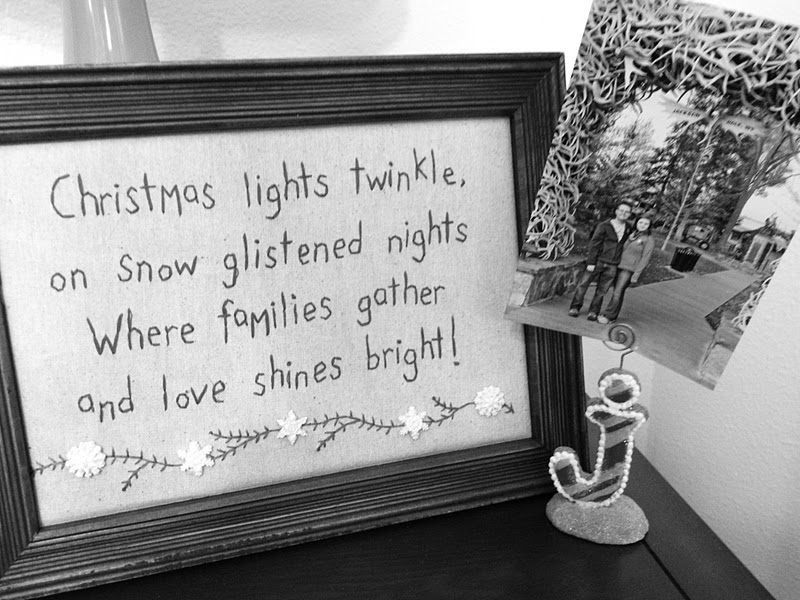 Christmas lights twinkle,
on snow glistened nights
Where families gather
and love shines bright!
j